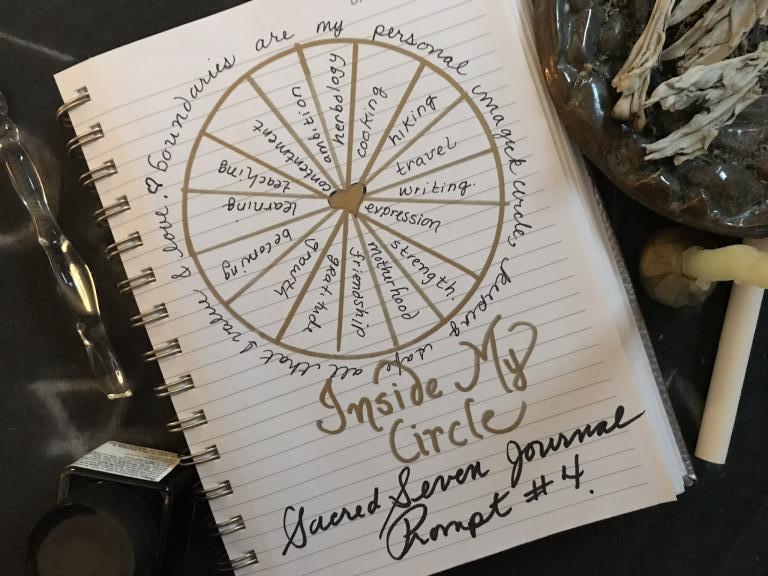 ♡ boundaries are my personal magick circle, keeping safe all that I value & love.
herbology
cooking
hiking
travel
writing.
expression
strength.
motherhood
friendship
gratitude
growth
becoming
learning
teaching
contentment
ambition
Inside My
Circle
Sacred Seven Journal
Prompt #4.